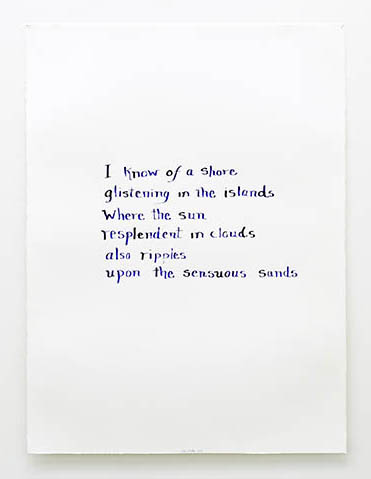 I know of a shore
glistening in the islands
Where the sun
resplendent in clouds
also ripples
upon the sensuous sands